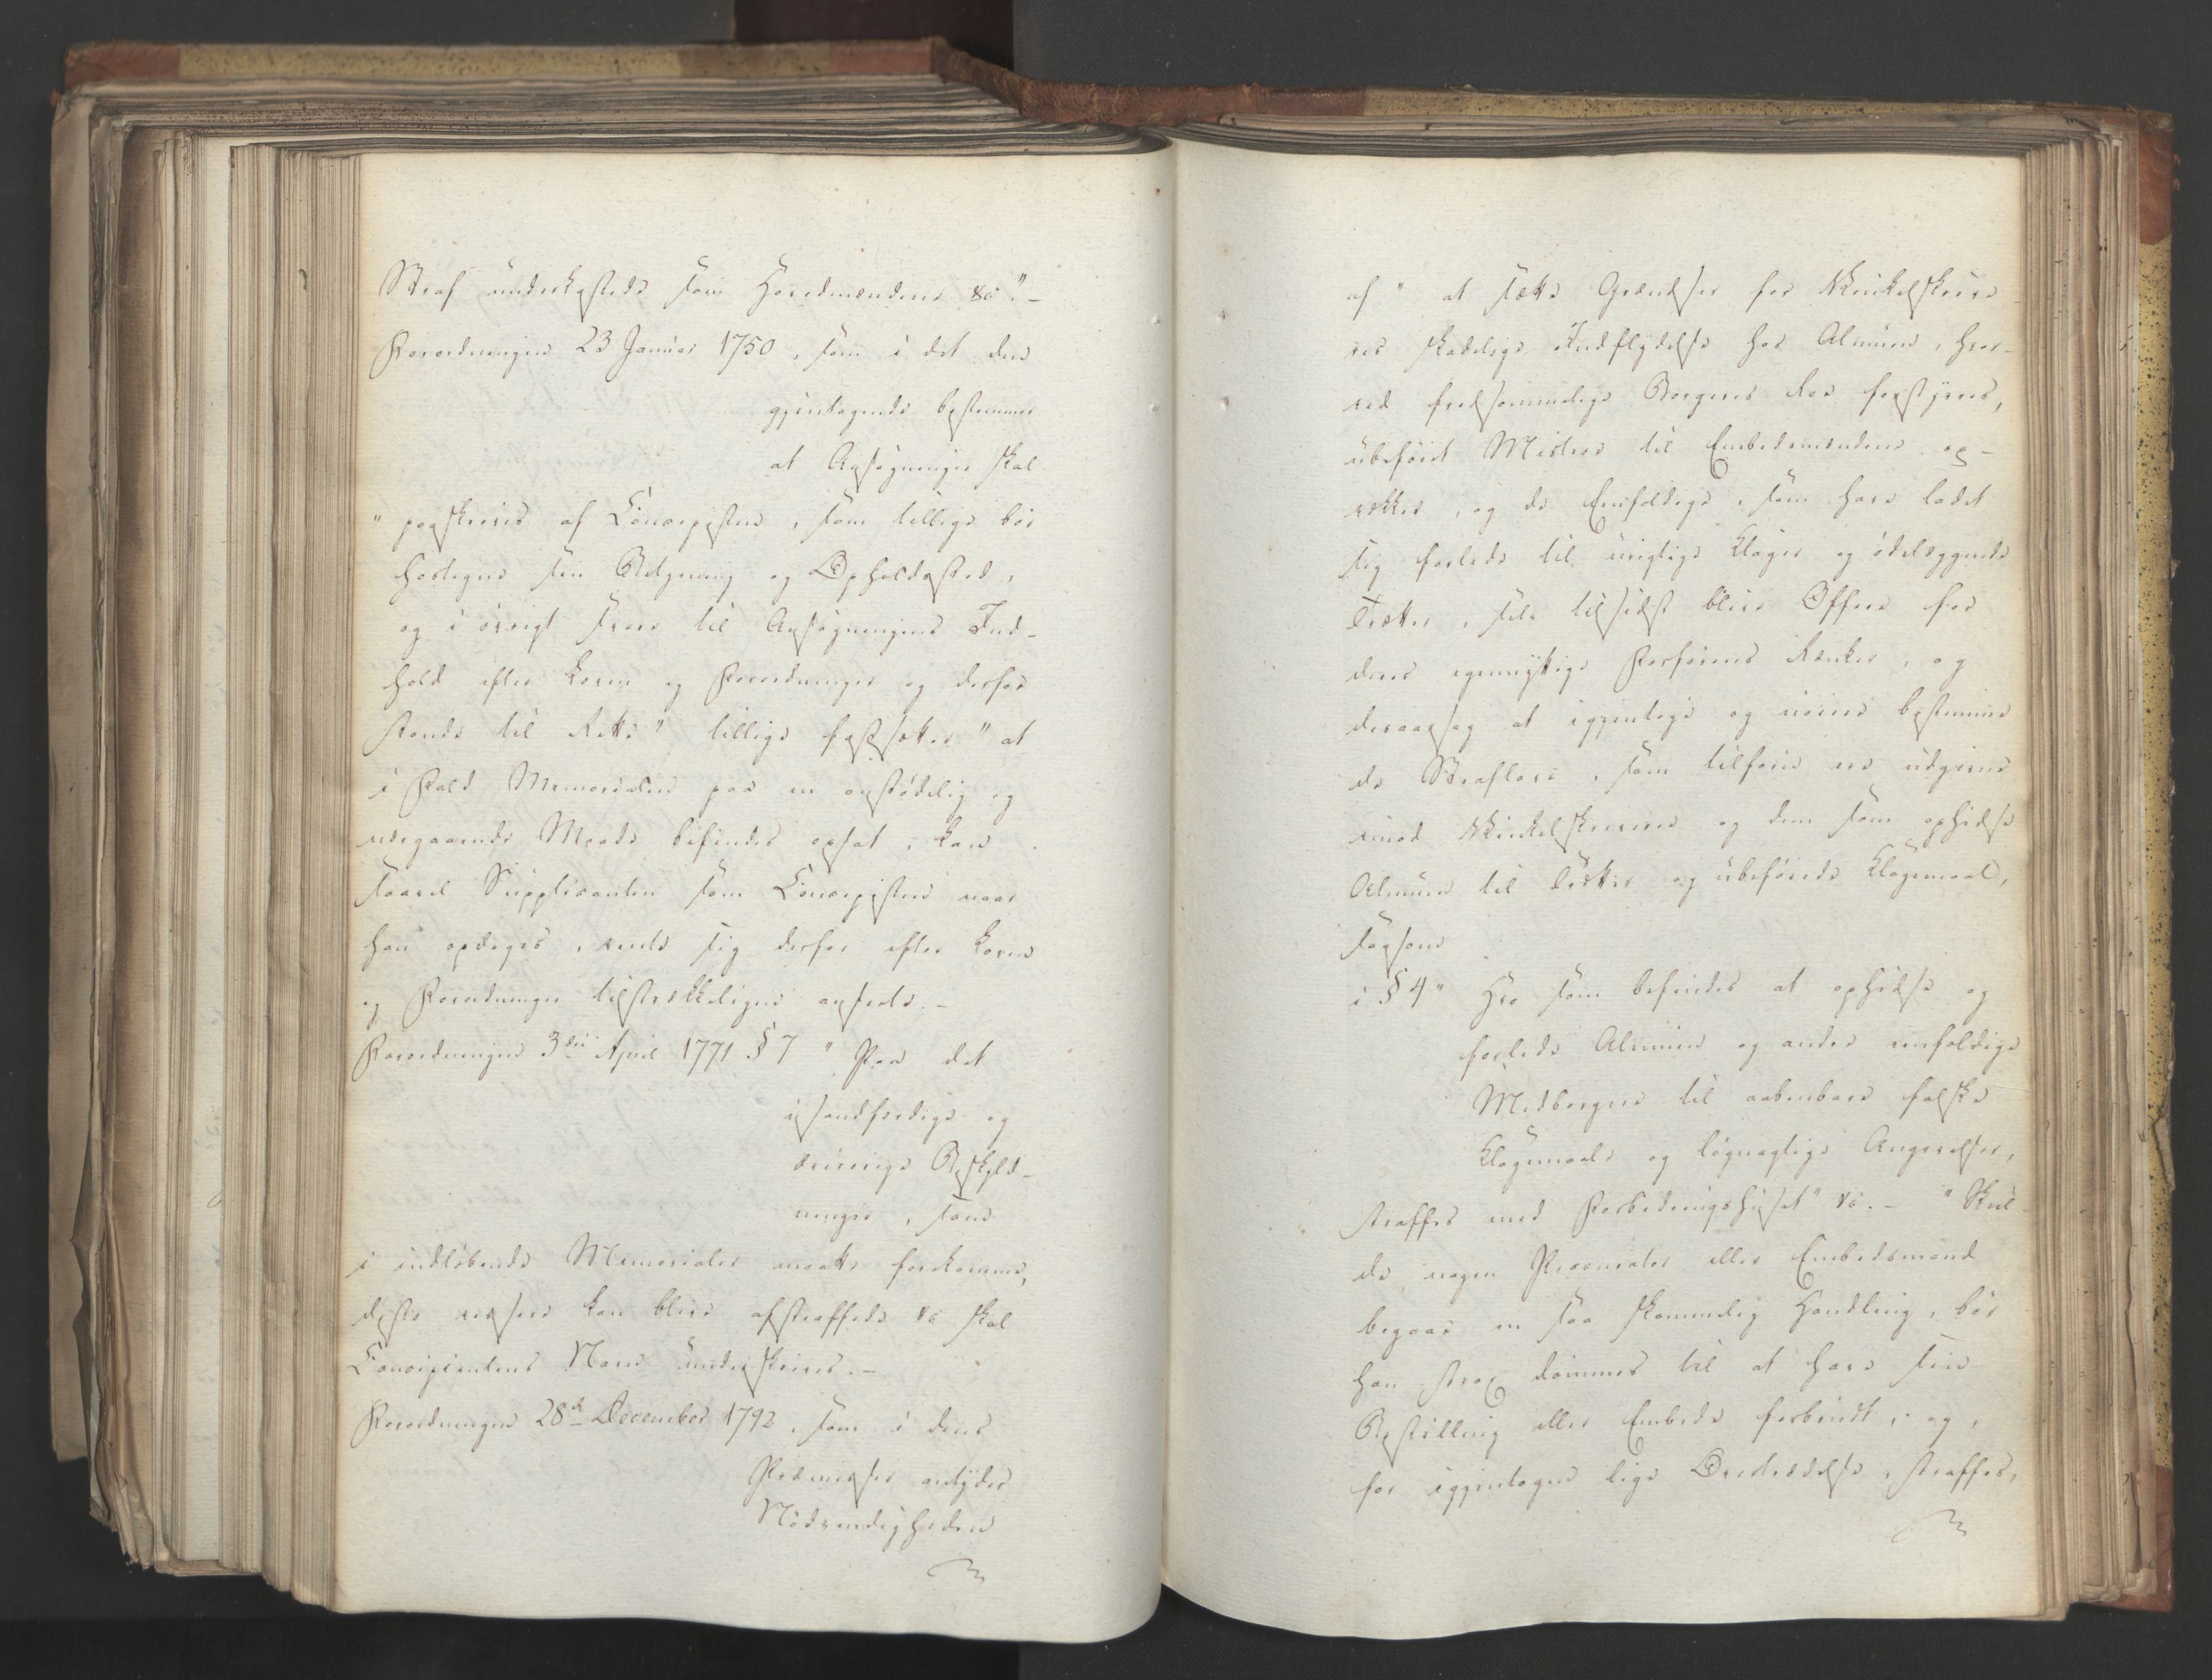 Straf underkastede som Hovedmændene &c".-
Forordningen 23 Januar 1750, som i det den
gjentagende bestemmer
at Ansøgninger skal
"paaskrives af Concipisten, som tillige bør
hostegne sin Betjening og Opholdssted,
og i øvrigt svare til Ansøgningens Ind-
hold efter Loven og Forordninger og derfor
stande til Rette" tillige fastsætter "at
i Fald Memorialen paa en anstødelig og
nærgaaende Maade befindes opsat, kan
saavel Supplicanten som Concipisten naar
han opdages, vente sig derfor efter Loven
og Forordninger tilstrækkeligen anseete.-
Forordningen 3die April 1771 § 7 "Paa det
usandfærdige og
ærerørige Beskyld-
ninger, som
i indløbende Memorialer maatte forekomme,
desto vissere kan blive afstraffede &c skal
Concipientens Navn underskrives.-
Forordningen 28d December 1792, som i dens
Præmisser antyder
Nødvendigheden
af "at sætte Grændser for Vinkelskrive-
res skadelige Indflydelse hos Almuen, hvor-
ved fredsommelige Borgeres Roe forstyrres,
ubeføiet Mistroe til Embedsmændene op-
vækkes, og de Enfoldige, som have ladet
sig forlede til urigtige Klager og ødelæggende
Trætter, selv tilsidst blive Offere for
deres egennyttige Forføreres Rænker, og
desaarsag at igjentage og nøiere bestemme
de Straflove, som tilforn ere udgivne
imod Vinkelskrivere og dem som ophidse
Almuen til Trætter og ubeføiede Klagemaal,
saasom
i § 4 " Hvo som befindes at ophidse og
forlede Almuen og andre eenfoldige
Medborgere til aabenbare falske
Klagemaale og løgnagtige Angivelser,
straffes med Forbedringshuset" &c.- "Skul-
de nogen Procurator eller Embedsmand
begaae en saa skammelig Handling, bør
han strax dømmes til at have sin
Bestilling eller Embede forbrudt, og,
for igjentagen lige Overtrædelse, straffes,